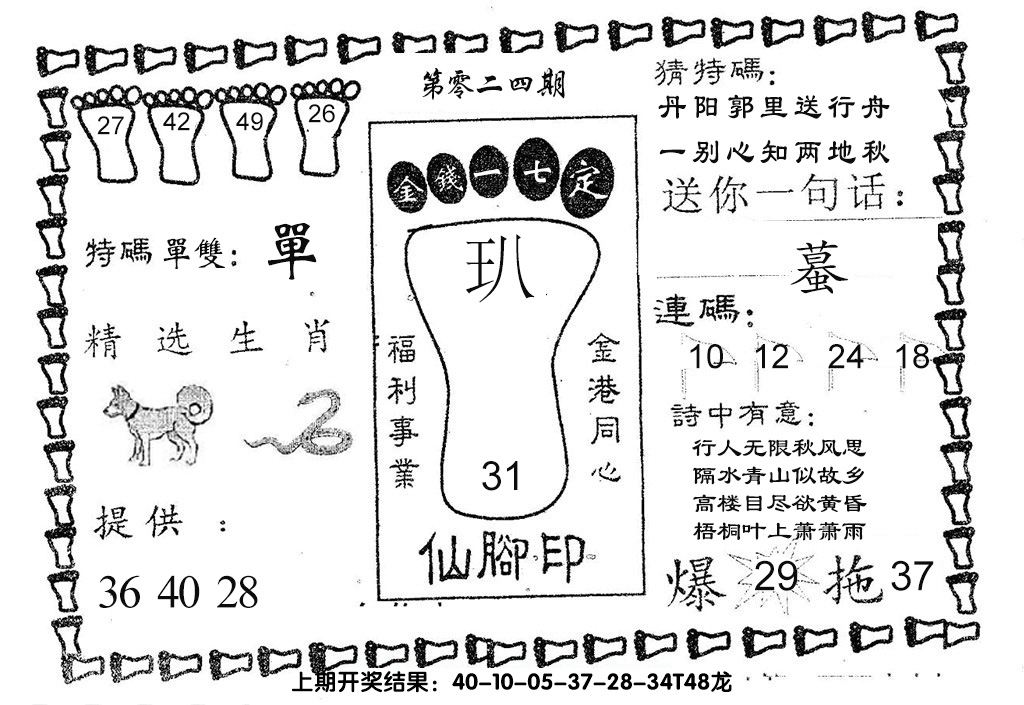 第零二四期
27 42 49 26
特碼單雙：單
精选生肖
提供：
36 40 28
金錢一七定
玐
福利事業
金港同心
31
仙腳印
猜特碼：
丹阳郭里送行舟
一别心知两地秋
送你一句话：
蟇
連碼：
10 12 24 18
詩中有意：
行人无限秋风思
隔水青山似故乡
高楼目尽欲黄昏
梧桐叶上萧萧雨
爆 29 拖 37
上期开奖结果：40-10-05-37-28-34T48龙